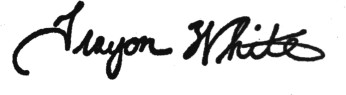 Trayon White